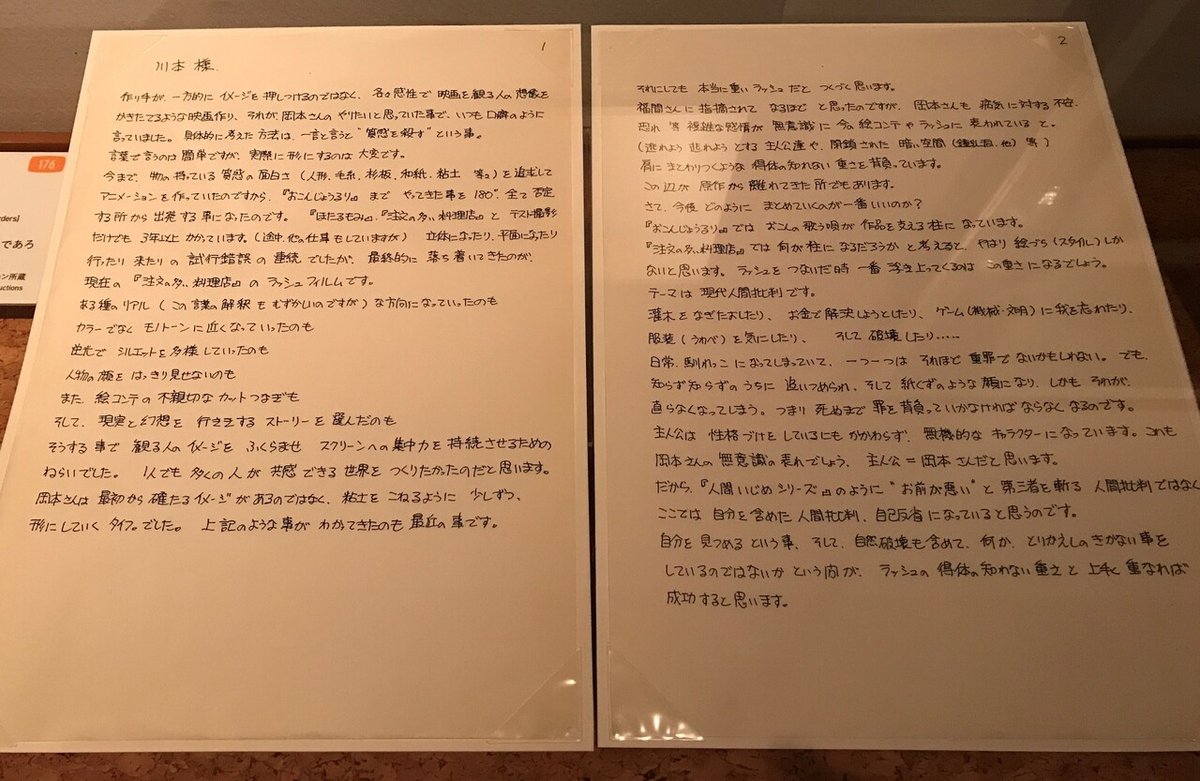 176
ders)
であろ
ン所蔵
uctions
1
川本 様
作り手が、一方的に イメージを 押しつけるのではなく、各々感性で 映画を観る人の 想像を
かきたてるような映画作り、それが 岡本さんの やりたいと思っていた事で、いつも 口癖のように
言っていました。具体的に考えた方法は、一言で言うと "質感を殺す" という事。
言葉で言うのは 簡単ですが、実際に形にするのは 大変です。
今まで、物の持っている 質感の 面白さ (人形、毛糸、杉板、和紙、粘土 等々) を追求して
アニメーションを作っていたのですから、『おこんじょうるり』まで やってきた事を 180°、全て否定
する所から 出発する事になったのです。『ほたるもみ』、『注文の多い料理店』と テスト撮影
だけでも 3年以上 かかっています。(途中、他の仕事もしていますが) 立体になったり、平面になったり
行ったり 来たり の 試行錯誤 の 連続 でしたが、最終的に 落ち着いてきたのが、
現在の 『注文の多い料理店』 の ラッシュフィルムです。
ある種の リアル ( この言葉の解釈 も むずかしいのですが ) な方向になっていったのも
カラーでなく モノトーンに近くなっていったのも
逆光で シルエットを多様していったのも
人物の顔を はっきり見せないのも
また、絵コンテの 不親切な カットつなぎも
そして、現実と幻想を 行き来する ストーリーを 選んだのも
そうする事で 観る人のイメージを ふくらませ スクリーンへの集中力を 持続させるための
ねらいでした。1人でも 多くの人が 共感できる世界を つくりたかったのだと思います。
岡本さんは 最初から 確たるイメージがあるのではなく、粘土をこねるように 少しずつ、
形にしていく タイプでした。 上記のような事が わかってきたのも 最近の事です。
2
それにしても 本当に重い ラッシュだと つくづく思います。
福間さんに 指摘されて なるほど と思ったのですが、岡本さんも 病気に対する 不安、
恐れ 等 複雑な感情が 無意識に 今の絵コンテや ラッシュに 表われている と。
(逃れよう 逃れよう とする 主人公達や、閉鎖された 暗い空間 ( 他) 等 )
肩に まとわりつくような 得体の知れない 重さを 背負っています。
この辺が 原作から 離れてきた 所でもあります。
さて、今後 どのように まとめていくのが一番いいのか?
『おこんじょうるり』では おこんの歌う唄が 作品を支える 柱に なっています。
『注文の多い料理店』では 何が柱に なるだろうか と考えると、やはり 絵づら(スタイル)しか
ないと思います。ラッシュを つないだ時 一番 浮き上ってくるのは この重さになるでしょう。
テーマは 現代人間批判 です。
灌木を なぎたおしたり、お金で解決しようとしたり、ゲーム(機械・文明)に我を忘れたり、
服装(うわべ)を気にしたり、 そして 破壊したり‥‥‥
日常、馴れっこ になってしまっていて、一つ一つは それほど 重罪で ないかもしれない。でも、
知らず知らずの うちに 追いつめられ、そして 紙くずのような 顔になり、しかも それが、
直らなくなってしまう。つまり 死ぬまで 罪を背負っていかなければ ならなくなるのです。
主人公は 性格づけを しているにも かかわらず、無機的な キャラクターになっています。これも
岡本さんの 無意識の表れでしょう、主人公=岡本さんだと思います。
だから、『人間いじめシリーズ』のように "お前が悪い" と 第三者を斬る 人間批判ではなく
ここでは 自分を含めた 人間批判、自己反省 になっていると思うのです。
自分を見つめる という事、そして、自然破壊も含めて、何か、とりかえしのきかない事を
しているのではないか という 内が、ラッシュの 得体の知れない重さと 上手く 重なれば
成功すると思います。